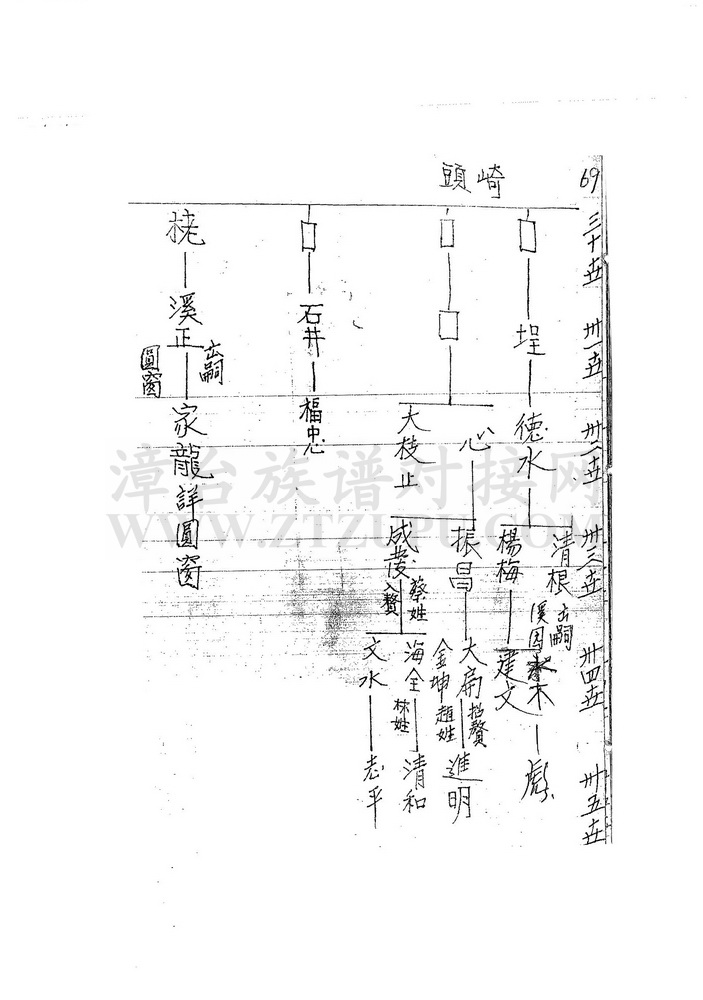 69
三十世
卅一世
卅二世
卅三世
卅四世
卅五世
崎頭
埕
德水
清根
出嗣
溪
木
彪
楊梅
建文
心
振昌
大扁
招贅
進明
金坤
趙姓
大枝
止
成發
蔡姓
入贅
海全
林姓
清和
文水
志平
石井
福中心
溪正
出嗣
圓窗
家龍詳圓窗
漳台族谱对接网
WWW.ZTZUPU.COM